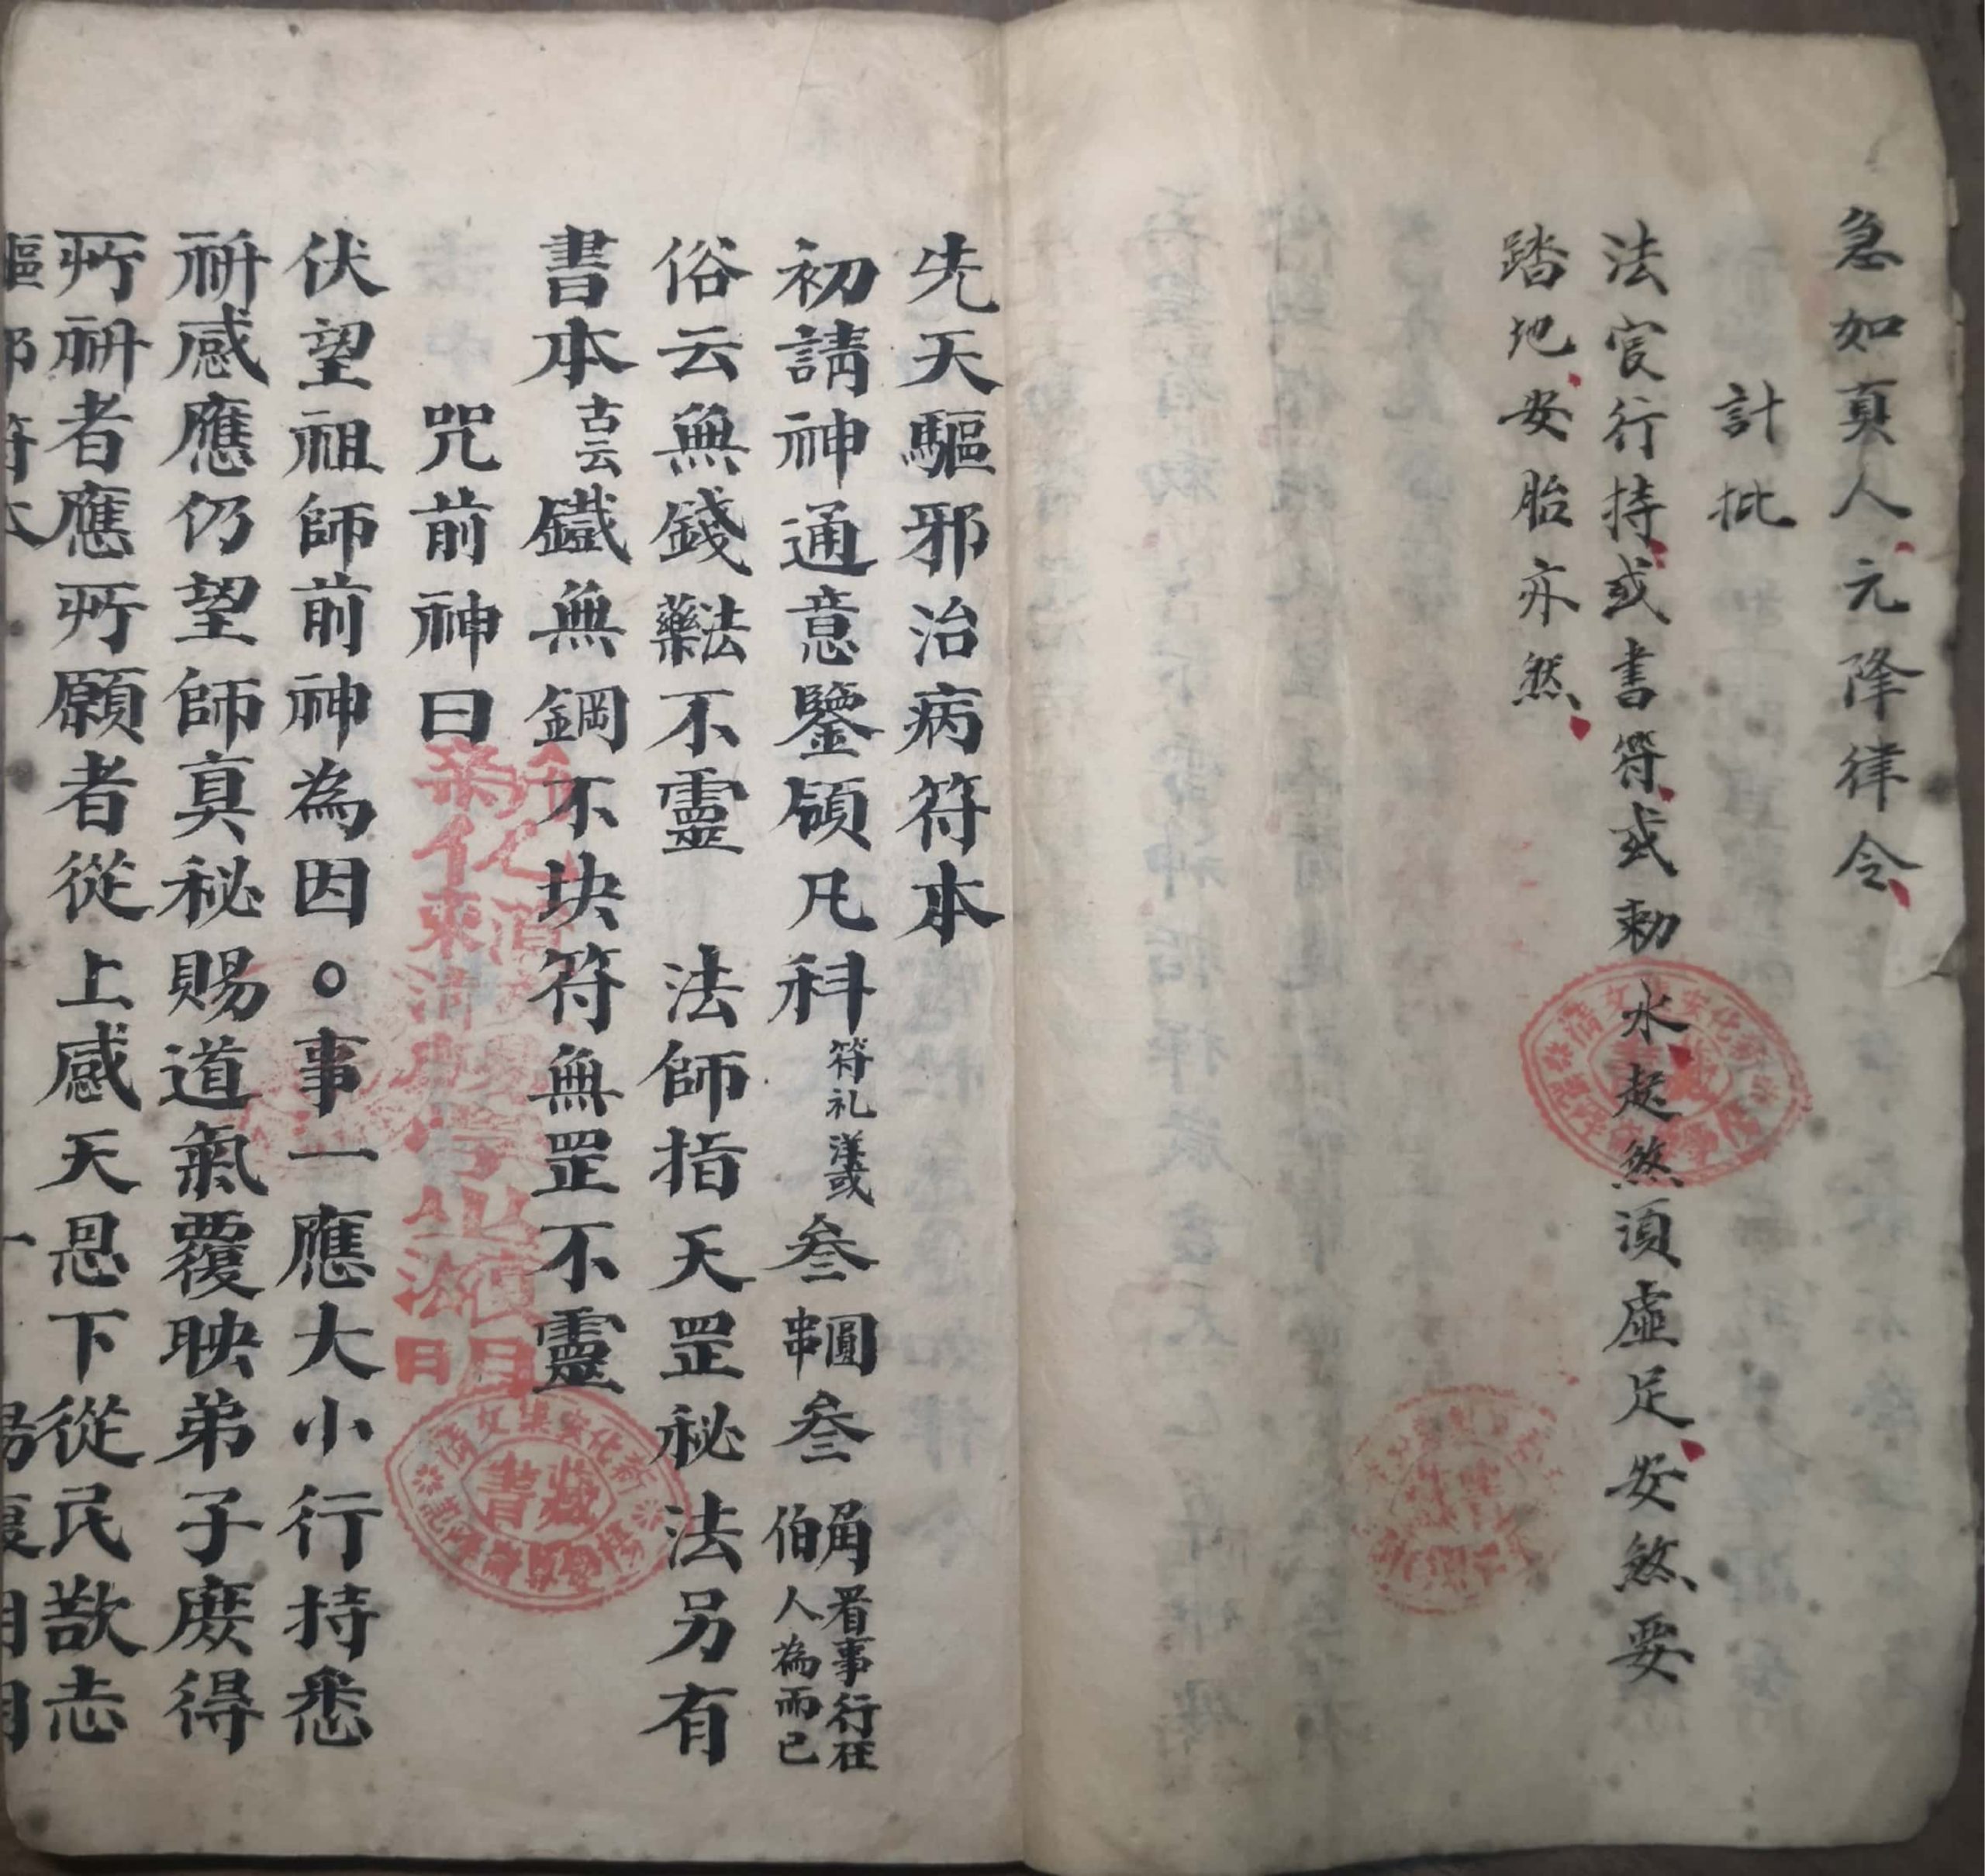 急如真人元降律令
計批
法官行持或書符或勅水起煞須虛足安煞要
踏地安胎亦然
先天驅邪治病符本
初請神通意鑒領凡科符礼洋或叁串圓叁佰角看事行在人為而已
俗云無錢藥法不靈 法師指天罡秘法另有
書本古云鐵無鋼不块符無罡不靈
咒前神曰
伏望祖師前神為因○事一應大小行持悉
祈感應仍望師真秘賜道氣覆映弟子庻得
所祈者應所願者從上感天恩下從民歡志
藏書